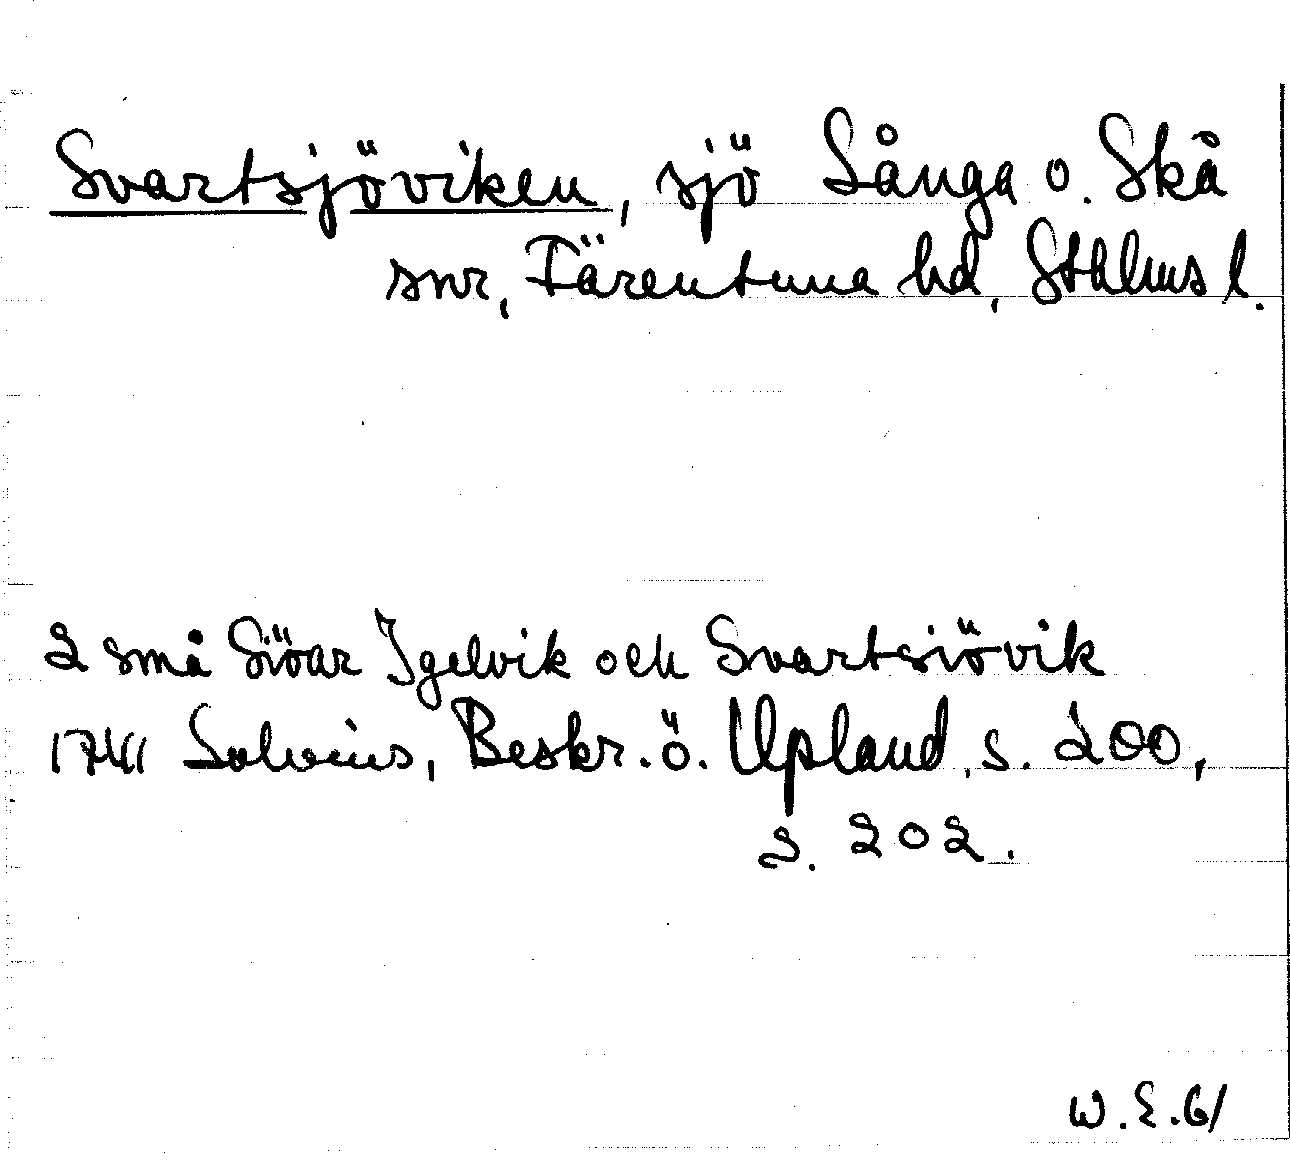 Svartsjöviken, sjö Sånga o. Skå
snr, Färentuna hd, Sthlms l.
2 små Siöar Igelvik och Svartsiövik
1741 Salvius, Beskr. ö. Upland, s. 200,
s. 202.
W. E. 61